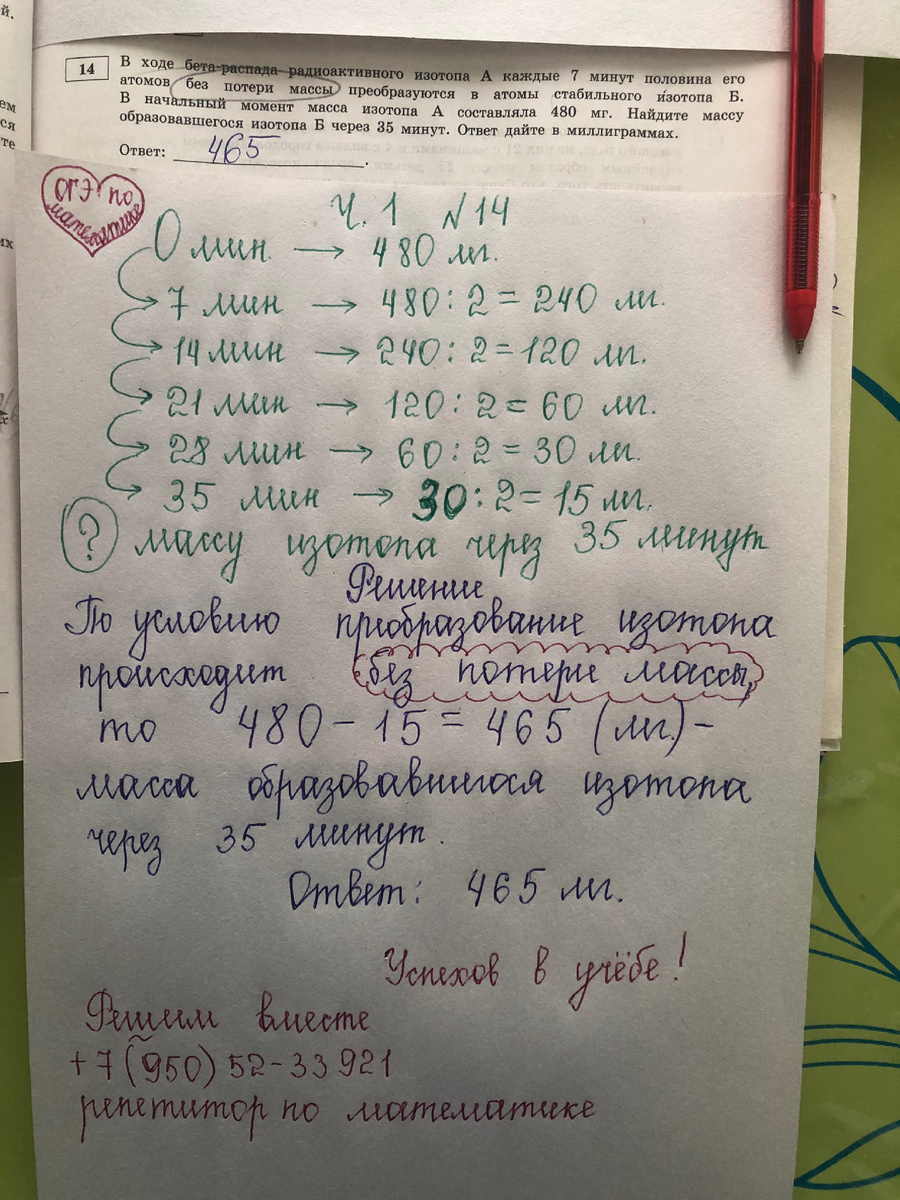 й.
ем
ся
те
их
14
В ходе бета-распада радиоактивного изотопа А каждые 7 минут половина его
атомов без потери массы преобразуются в атомы стабильного изотопа Б.
В начальный момент масса изотопа А составляла 480 мг. Найдите массу
образовавшегося изотопа Б через 35 минут. Ответ дайте в миллиграммах.
Ответ: 465.
ОГЭ по
математике
Ч. 1 №14
0 мин → 480 мг.
7 мин → 480 : 2 = 240 мг.
14 мин → 240 : 2 = 120 мг.
21 мин → 120 : 2 = 60 мг.
28 мин → 60 : 2 = 30 мг.
35 мин → 30 : 2 = 15 мг.
? массу изотопа через 35 минут
Решение
По условию преобразование изотопа
происходит без потери массы,
то 480 – 15 = 465 (мг.) –
масса образовавшегося изотопа
через 35 минут.
Ответ: 465 мг.
Успехов в учёбе!
Решим вместе
+7(950) 52-33921
репетитор по математике